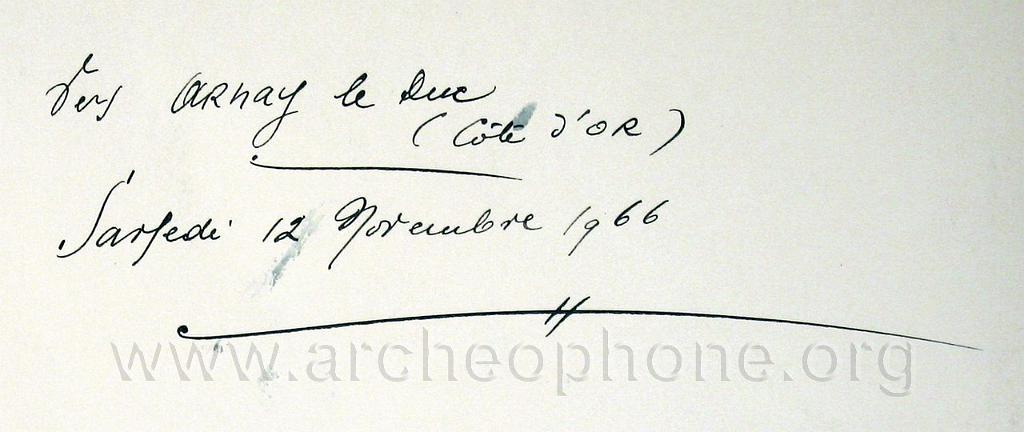 Vers ARNAY le Duc
(Côte d'OR)
Samedi 12 Novembre 1966
www.archeophone.org